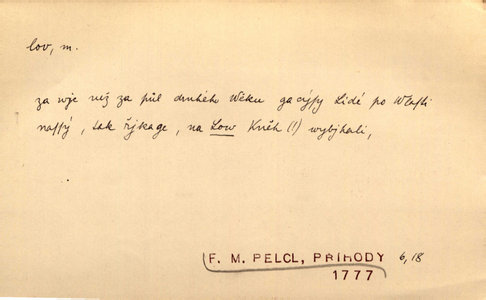 lov, m.
za wje než za půl druhého Wěku gacýsy Lidé po Wlasti
nassý, tak řjkage, na Low Kněh (!) wybjhali,
F. M. PELCL, PŘÍHODY 6,18
1777